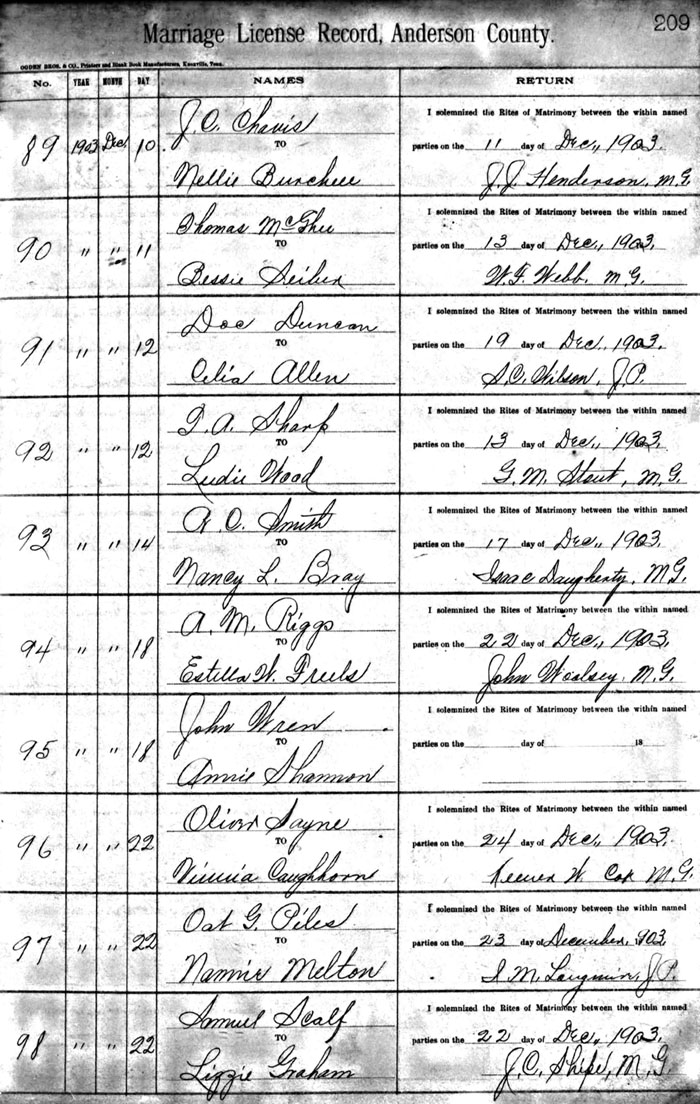 209
Marriage License Record, Anderson County.
OGDEN BROS. & CO., Printers and Blank Book Manufacturers, Knoxville, Tenn.
No. YEAR MONTH DAY NAMES RETURN
I solemnized the Rites of Matrimony between the within named
89 1903 Dec. 10 J. C. Chavis
TO
parties on the 11 day of Dec., 1903.
Nellie Burchell
J. J. Henderson, M.G.
I solemnized the Rites of Matrimony between the within named
90 " " 11 Thomas McGhee
TO
parties on the 13 day of Dec., 1903.
Bessie Seiber
W. F. Webb. M.G.
I solemnized the Rites of Matrimony between the within named
91 " " 12 Doc Duncan
TO
parties on the 19 day of Dec., 1903.
Celia Allen
S. C. Wilson, J.P.
I solemnized the Rites of Matrimony between the within named
92 " " 12 Sharp
TO
parties on the 13 day of Dec., 1903.
Ludie Wood
G. M. Stout, M.G.
I solemnized the Rites of Matrimony between the within named
93 " " 14 C. Smith
TO
parties on the 17 day of Dec., 1903.
Nancy L. Bray
Isaac Daugherty, M.G.
I solemnized the Rites of Matrimony between the within named
94 " " 18 A. M. Riggs
TO
parties on the 22 day of Dec., 1903.
Estella W. Freels
John Woolsey. M.G.
I solemnized the Rites of Matrimony between the within named
95 " " 18 John Wren
TO
parties on the day of 18
Annie Shannon
I solemnized the Rites of Matrimony between the within named
96 " " 22 Oliver Sayne
TO
parties on the 24 day of Dec., 1903.
Caughhorn
W. Cox M.G.
I solemnized the Rites of Matrimony between the within named
97 " " 22 Oat G. Piles
TO
parties on the 23 day of December, 1903.
Nannie Melton
M. J.P.
I solemnized the Rites of Matrimony between the within named
98 " " 22 Samuel Scalf
TO
parties on the 22 day of Dec., 1903.
Lizzie Graham
J. C. Shipe, M.G.